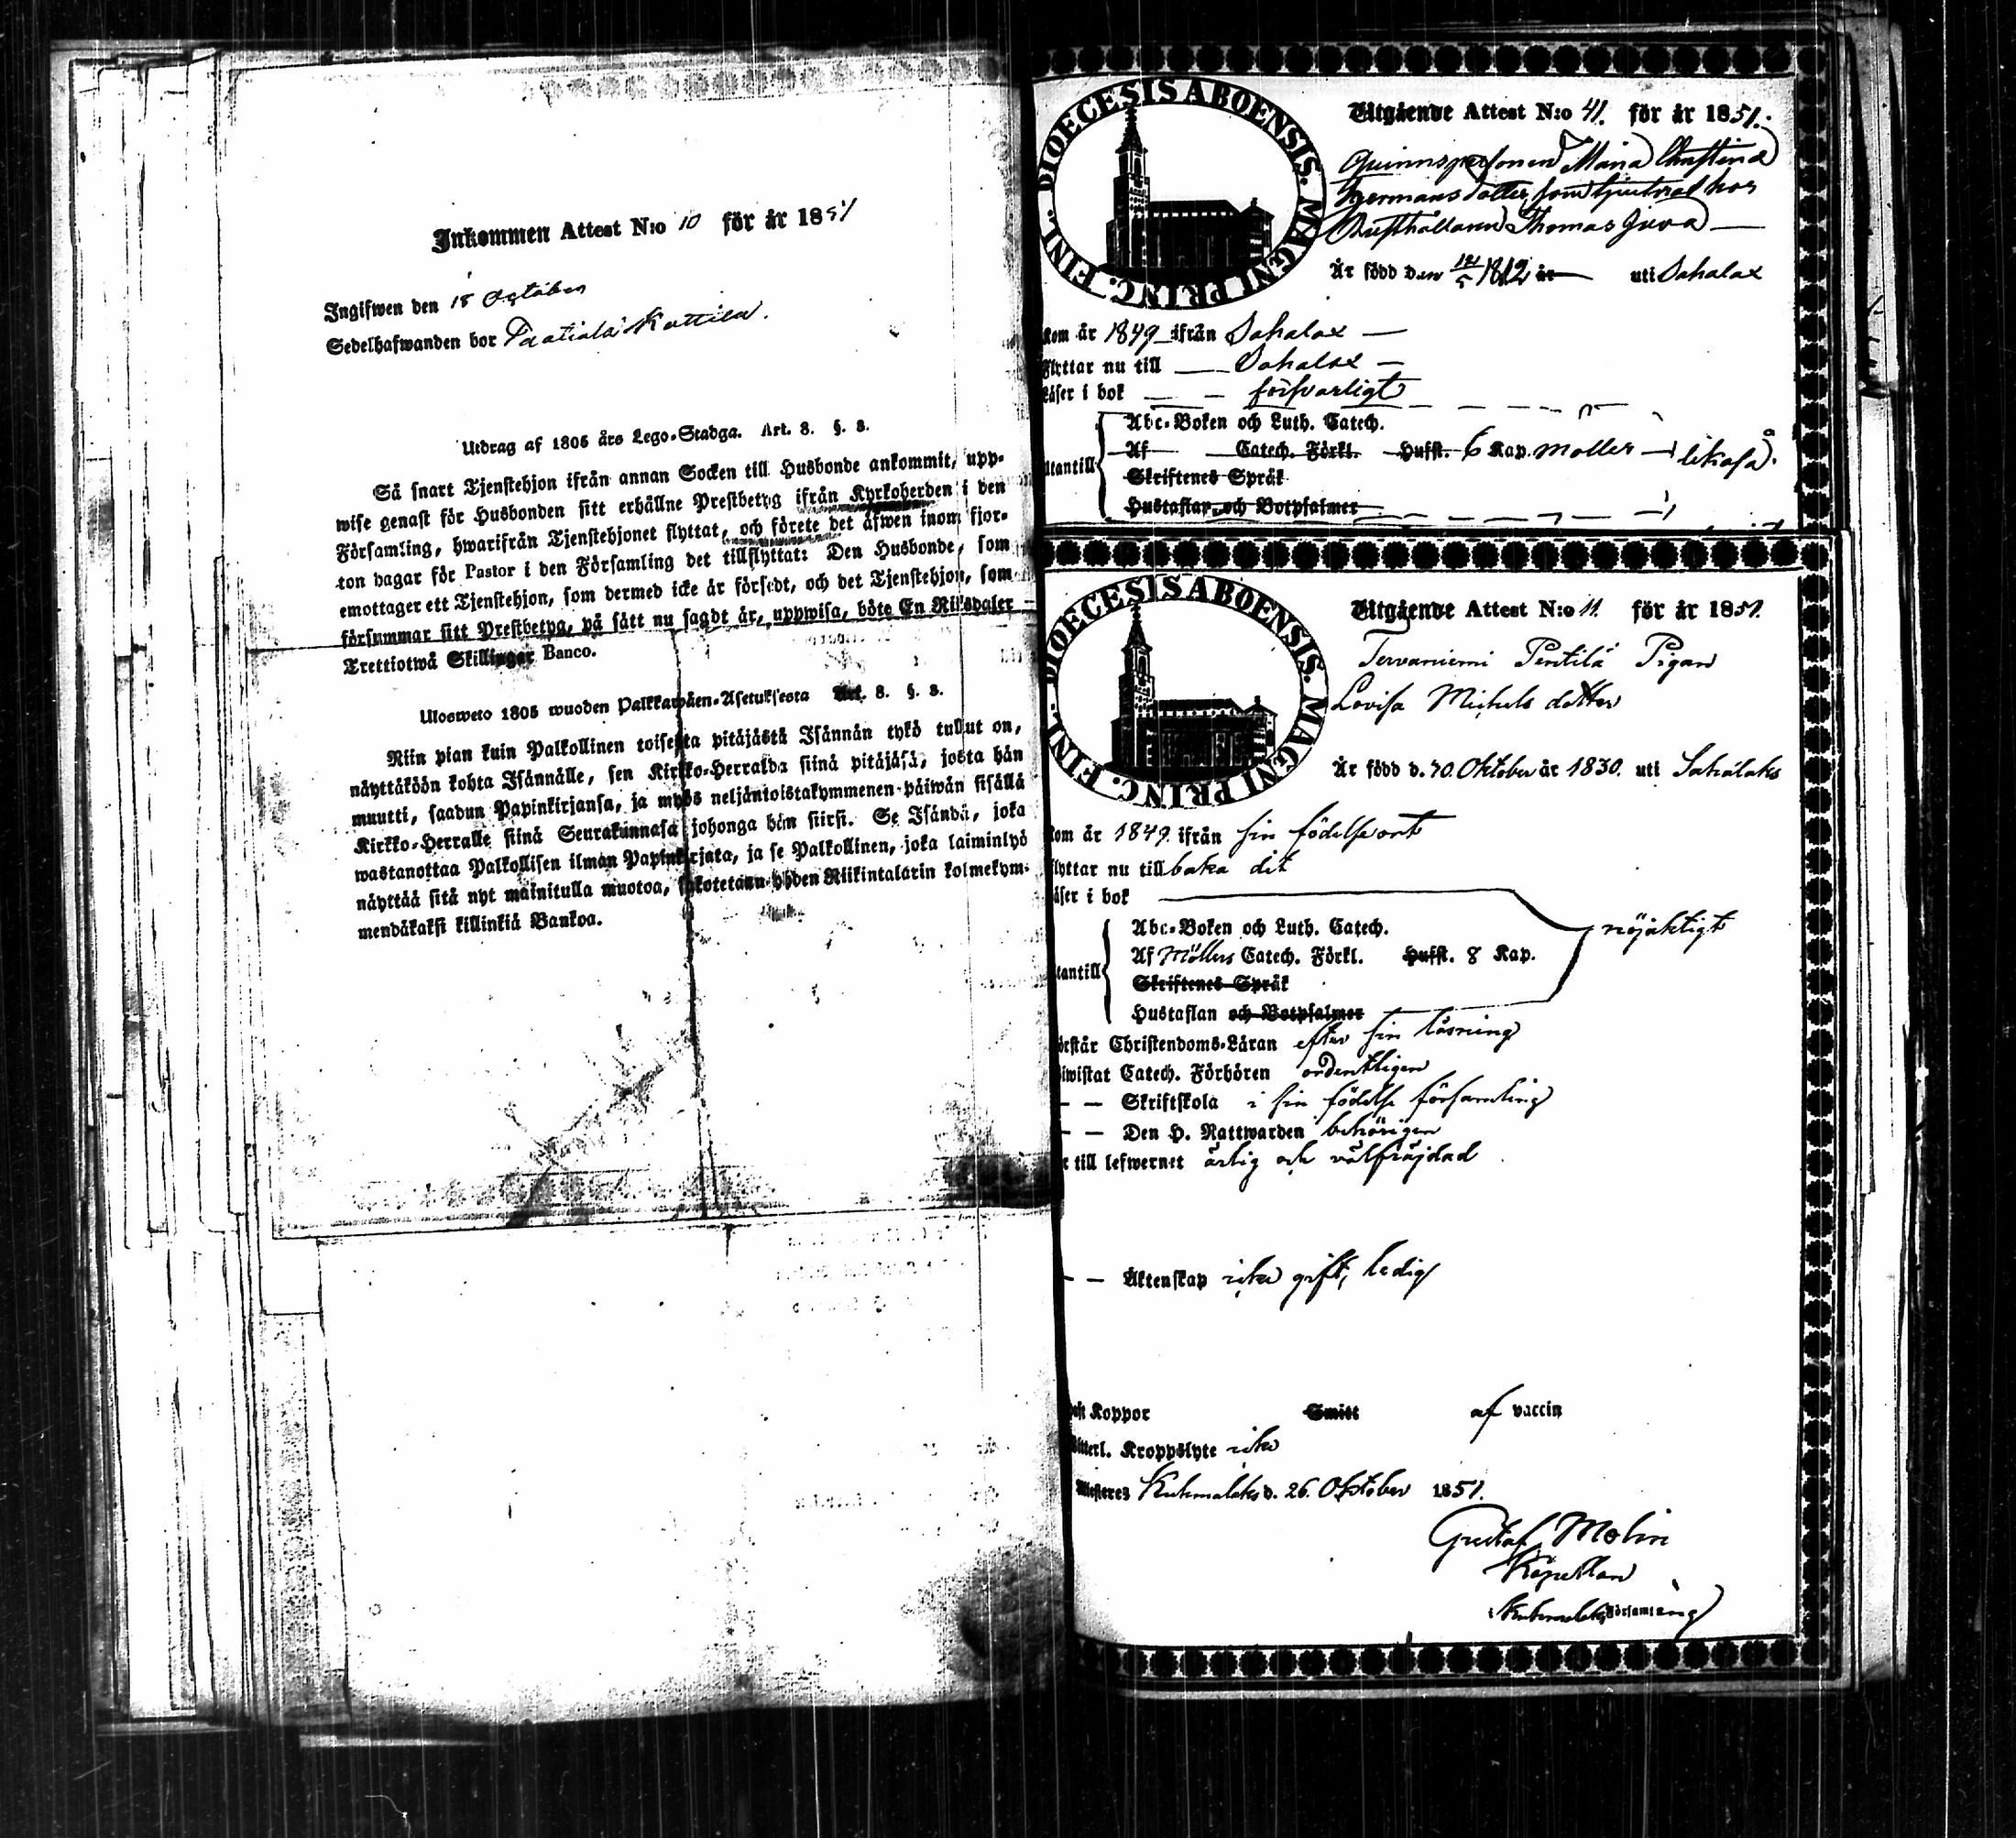 Inkommen Attest N:o 10 för år 1851
Ingifwen den 18 October
Sedelhafwanden bor Paatiala Kattila.
Utdrag af 1805 års Lego-Stadga. Art. 8. §. 8.
Så snart Tjenstehjon ifrån annan Socken till Husbonde ankommit, upp-
wise genast för Husbonden sitt erhållne Prestbetyg ifrån Kyrkoherden i den
Församling, hwarifrån Tjenstehjonet flyttat, och förete det äfwen inom fjor-
ton dagar för Pastor i den Församling det tillflyttat: Den Husbonde, som
emottager ett Tjenstehjon, som dermed icke är försedt, och det Tjenstehjon, som
försummar sitt Prestbetyg, på sätt nu sagdt är, uppwisa, böte En Riksdaler
Trettiotwå Skillingar Banco.
Ulosweto 1805 wuoden Palkkawäen-Asetuksesta Art. 8. §. 8.
Niin pian kuin Palkollinen toisesta pitäjästä Isännän tykö tullut on,
näyttäköön kohta Isännälle, sen Kirkko-Herralda siinä pitäjäsä, josta hän
muutti, saadun Papinkirjansa, ja myös neljäntoistakymmenen-päiwän sisällä
Kirkko-Herralle siinä Seurakunnasa johonga hän siirsi. Se Isändä, joka
wastanottaa Palkollisen ilman Papinkirjata, ja se Palkollinen, joka laiminlyö
näyttää sitä nyt mainitulla muotoa, sakotetaan yhden Riikintalarin kolmekym-
mendäkaksi killinkiä Bankoa.
DIOECESIS ABOENSIS. MAGNI PRINC. FINL.
Utgående Attest N:o 41. för år 1851.
Qvinnspersonen Maria Christina
Hermans dotter som tjentrat hos
Rusthållaren Thomas Juva
Är född den 1812 år uti Sahalax
Kom år 1849 ifrån Sahalax
Flyttar nu till Sahalax
Läser i bok försvarligt
Abc-Boken och Luth. Catech.
Utantill Af Catech. Förkl. Hufst. 6 Kap. Möller likaså.
Skriftenes Språk
Hustaflan och Botpsalmer
DIOECESIS ABOENSIS. MAGNI PRINC. FINL.
Utgående Attest N:o 11. för år 1851.
Tervaniemi Pentilä Pigan
Lovisa Michels dotter
Är född d. 30. Oktober år 1830. uti Sahalaks
Kom år 1849. ifrån sin födelseort
Flyttar nu tillbaka dit
Läser i bok
Abc-Boken och Luth. Catech. nöjaktigt
Utantill Af Möllers Catech. Förkl. Hufst. 8 Kap.
Skriftenes Språk
Hustaflan och Botpsalmer
Förstår Christendoms-Läran efter sin läsning
Biwistat Catech. Förhören ordentligen
— — Skriftskola i sin födelse församling
— — Den H. Nattwarden behörigen
Är till lefwernet ärlig och välfräjdad
— — Äktenskap icke gift, ledig
Haft Koppor Smitt af vaccin
Witterl. Kroppslyte icke
Attesteres Kuhmalaks d. 26. Oktober 1851.
Gustaf Molin
Kapellan
i Kuhmalaks Församling